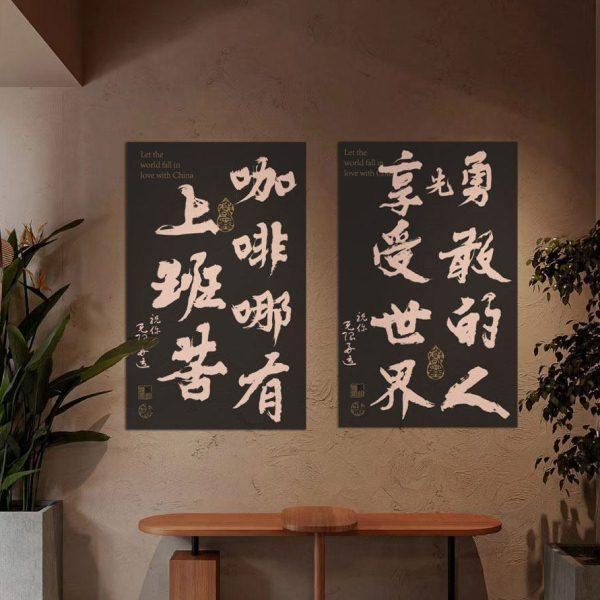 Let the
world fall in
love with China
咖啡哪有
上班苦
祝你
Let the
world fall in
love with
勇敢的人
先
享受世界
祝你